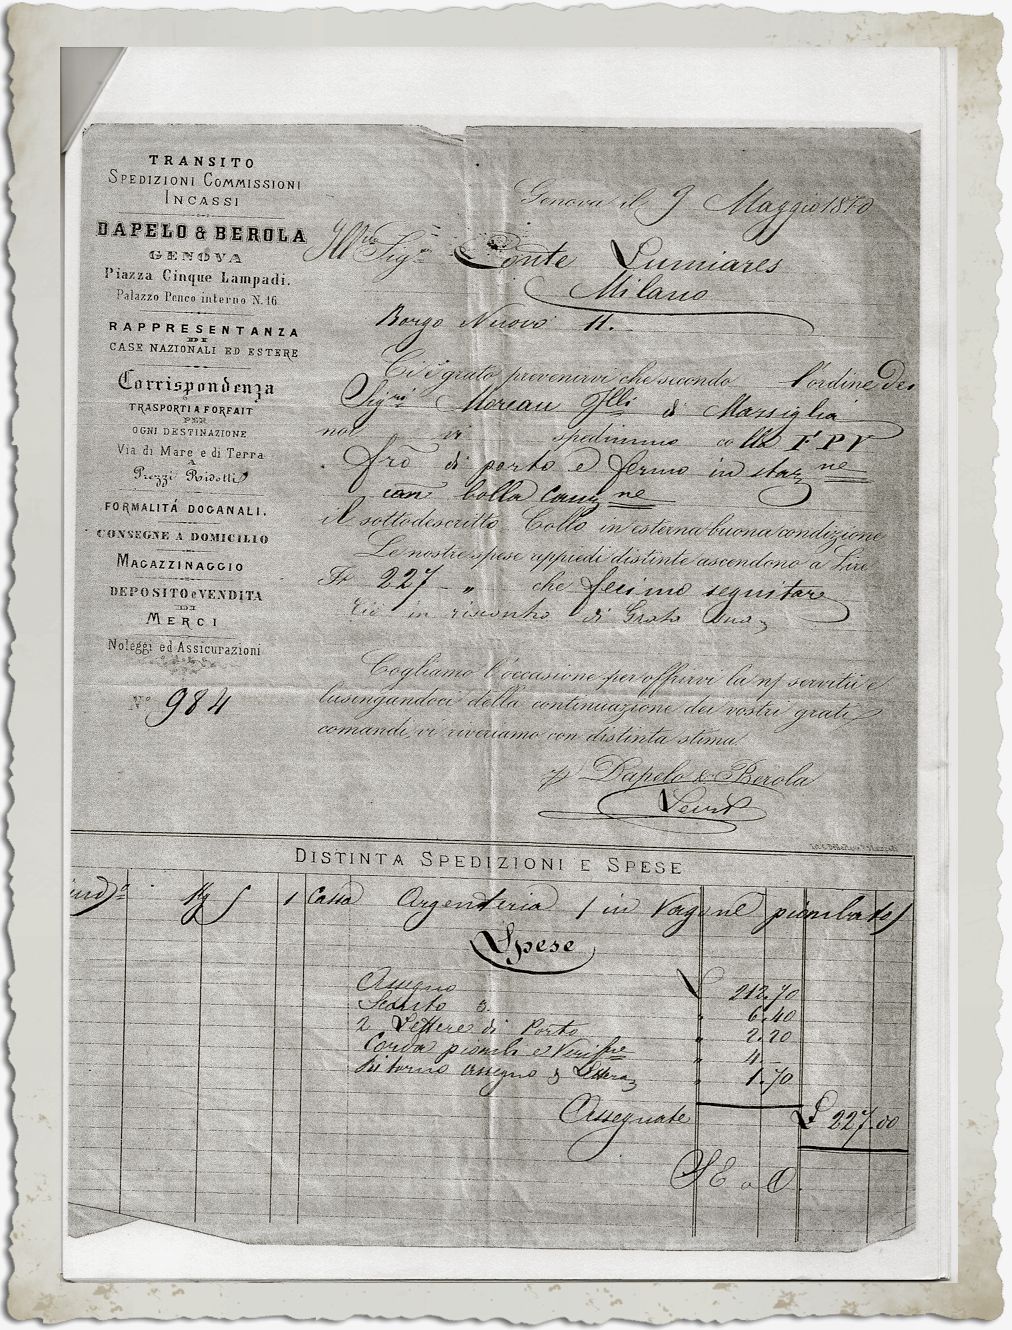 TRANSITO
SPEDIZIONI COMMISSIONI
INCASSI
DAPELO & BEROLA
GENOVA
Piazza Cinque Lampadi.
Palazzo Penco interno N. 16
RAPPRESENTANZA
DI
CASE NAZIONALI ED ESTERE
Corrispondenza
TRASPORTI A FORFAIT
PER
OGNI DESTINAZIONE
Via di Mare e di Terra
A
Prezzi Ridotti
FORMALITÁ DOGANALI.
CONSEGNE A DOMICILIO
MAGAZZINAGGIO
DEPOSITO e VENDITA
DI
MERCI
Noleggi ed Assicurazioni
N° 984
Genova il 9 Maggio 1870
Conte Lumiares
Milano
Borgo Nuovo 11.
Ci è grato prevenirvi che secondo l'ordine dei
Sigri Moreau Flli di Marsiglia
noi vi spedimmo
di porto e fermo in stazne
con bolla
il sottodescritto Collo in esterna buona condizione
Le nostre spese appiedi distinte ascendono a Lire
227 " che fecimo seguitare
in riscontro di
Cogliamo l'occasione per offrirvi la servitù e
lusengandoci della continuazione dei vostri grati
comandi, vi riveriamo con distinta stima.
Dapelo & Berola
DISTINTA SPEDIZIONI E SPESE
1 Cassa Argenteria / in Vagone piombato /
Spese
Assegno 212.70
3. 6.40
2 Lettere di Porto 2.20
Corda piombi e 4.-
Ritorno assegno & Lettera 1.70
Assegnate £ 227.00
S. E. o O.